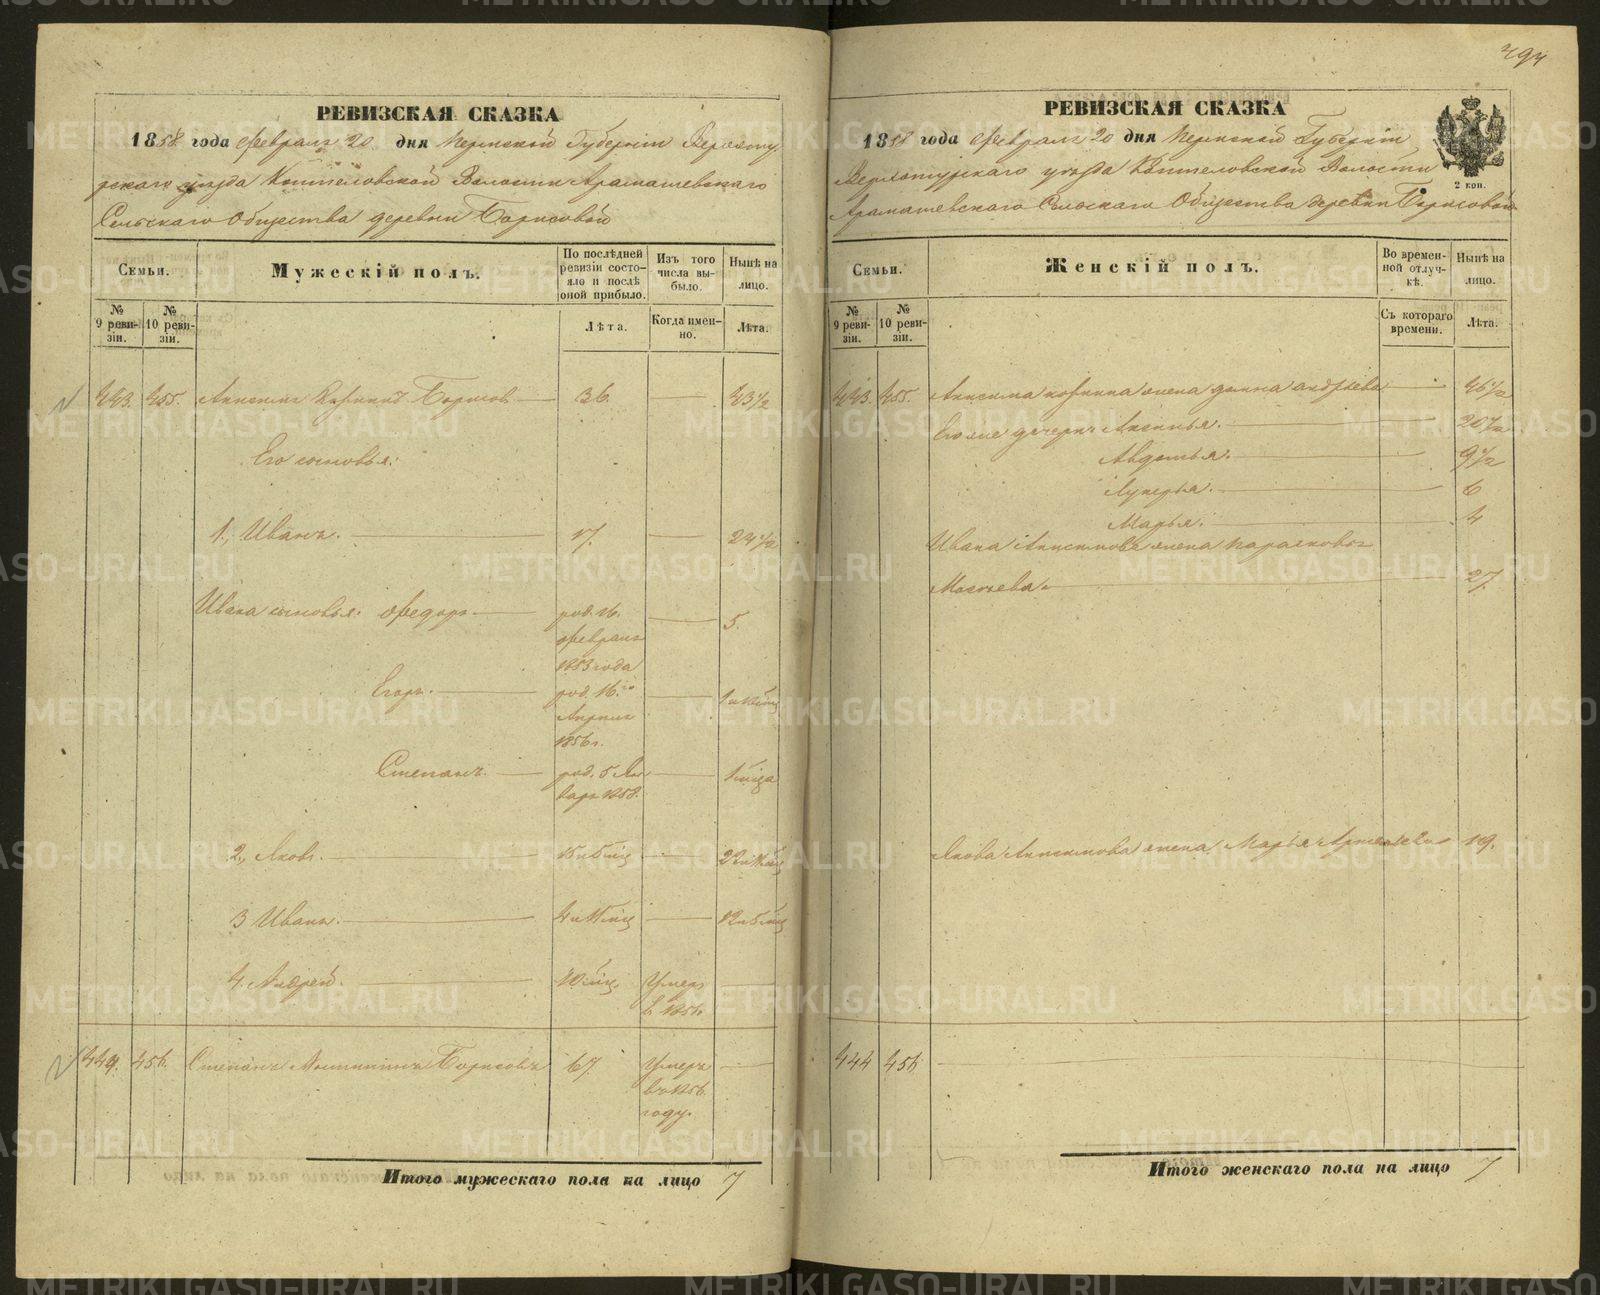 494
РЕВИЗСКАЯ СКАЗКА
1858 года Февраля 20 дня Пермской Губерніи Верхоту
рскаго уезда Коптеловской Волости Арамашевскаго
Сельскаго Общества деревни Борисовой
Семьи.
Мужескій полъ.
По послѣдней ревизіи состояло и послѣ оной прибыло.
Изъ того числа выбыло.
Нынѣ на лицо.
№ 9 ревизіи.
№ 10 ревизіи.
Лѣта.
Когда именно.
Лѣта.
443. 455. Анисимъ Борисов 36. 43½
Его сыновья:
1, Иванъ. 17. 24½
Ивана сыновья: Федоръ род. 16. Февраля 1853 года 5.
Егоръ. род. 16.го Апреля 1856 г.
Степанъ. род. 5 Января 1858. 1 мѣца
2, Яковъ.
3 Иванъ.
4, Андрей. Умеръ
444. 456. Степанъ Борисовъ 67. Умеръ въ 1856 году.
Итого мужескаго пола на лицо 7
РЕВИЗСКАЯ СКАЗКА
1858 года Февраля 20 дня Пермской Губерніи
Верхотурскаго уезда Коптеловской Волости
Арамашевскаго Сельскаго Общества деревни Борисовой
2 коп.
Семьи.
Женскій полъ.
Во временной отлучкѣ.
Нынѣ на лицо.
№ 9 ревизіи.
№ 10 ревизіи.
Съ котораго времени.
Лѣта.
443. 455. Анисима жена Домна Андреева 46½
Его же дочери: Аксинья. 20½
Авдотья. 9½
Лукерья. 6
Марья. 4
Ивана Анисимова жена
27
Якова Анисимова жена Марья 19.
444 456
Итого женскаго пола на лицо 7
METRIKI.GASO-URAL.RU